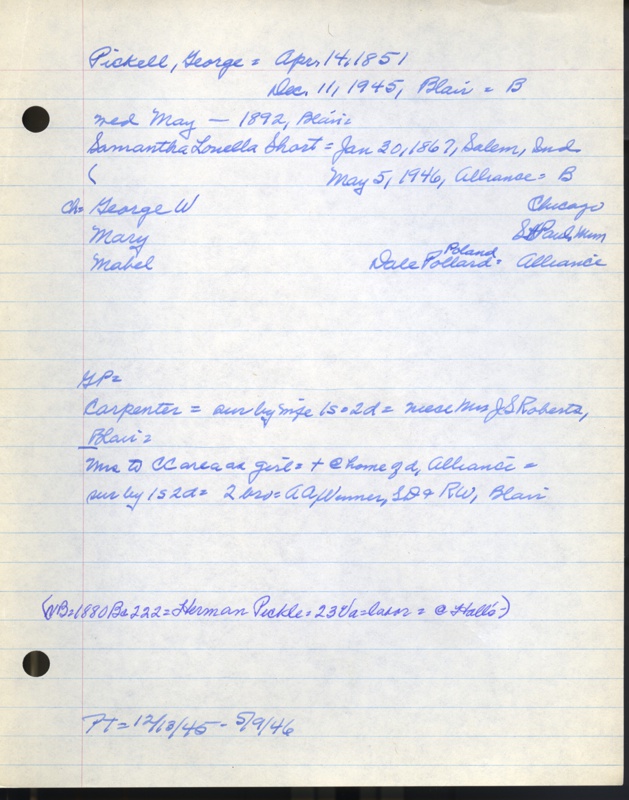 Pickell, George = Apr. 14, 1851
Dec. 11, 1945, Blair = B
wed May — 1892, Blair=
Samantha Louella Short = Jan 20, 1867, Salem, Ind.
( May 5, 1946, Alliance = B
ch= George W Chicago
Mary St Paul, Minn
Poland
Mabel Dale Pollard = Alliance
GP=
Carpenter = sur by wife 1s + 2d = niece Mrs J S Roberts,
Blair =
Mrs to CC area as girl = + @ home of d, Alliance =
sur by 1s 2d = 2 bro = A A, Winner, SD & RW, Blair
(NB=1880 Ba 222 = Herman Pickle = 23 Va = labor = @ Halls-)
PT = 12/13/45 - 5/9/46